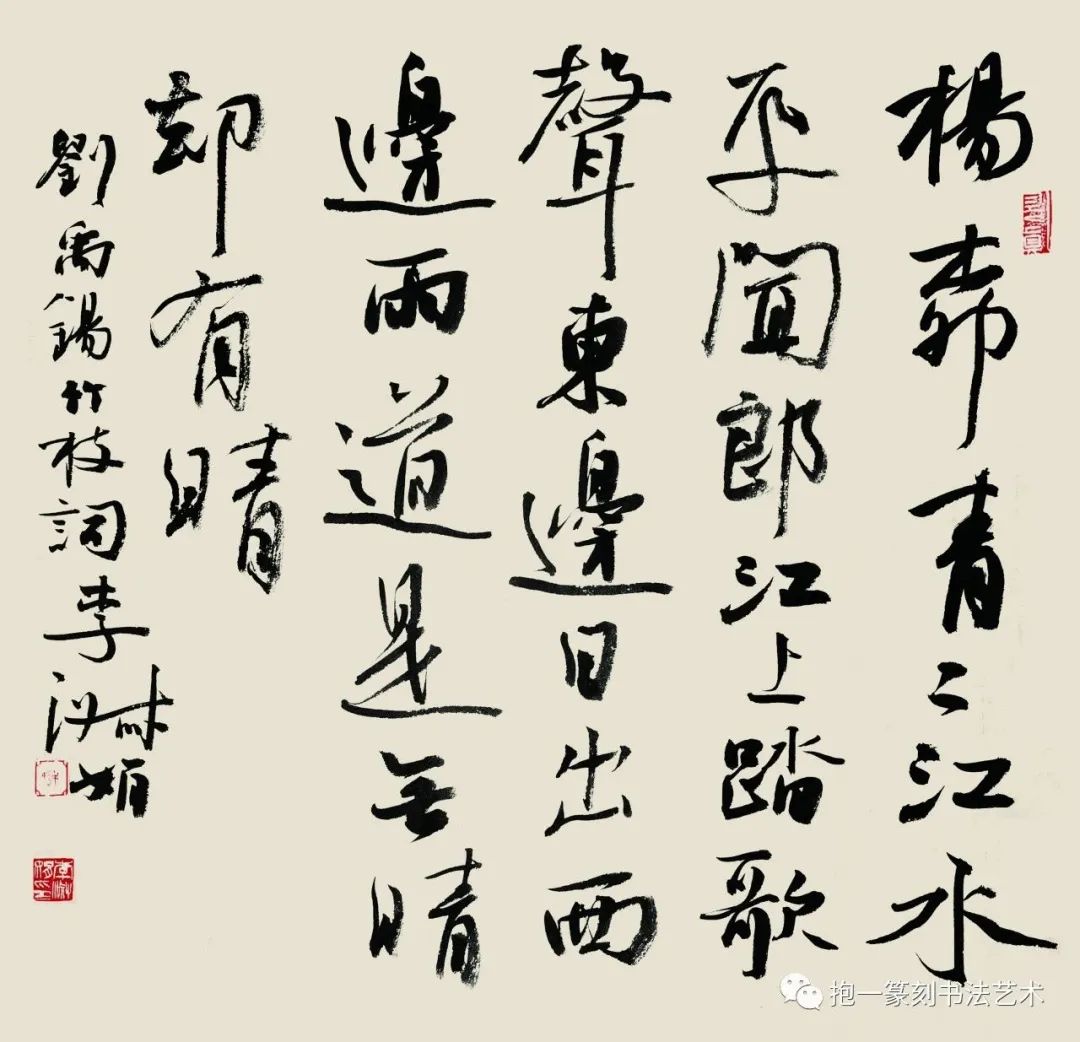 楊桺青〻江水
平聞郎江上踏歌
聲東邊日出西
邊雨道是無晴
却有晴
劉禹錫竹枝詞李淑娟
抱一篆刻书法艺术